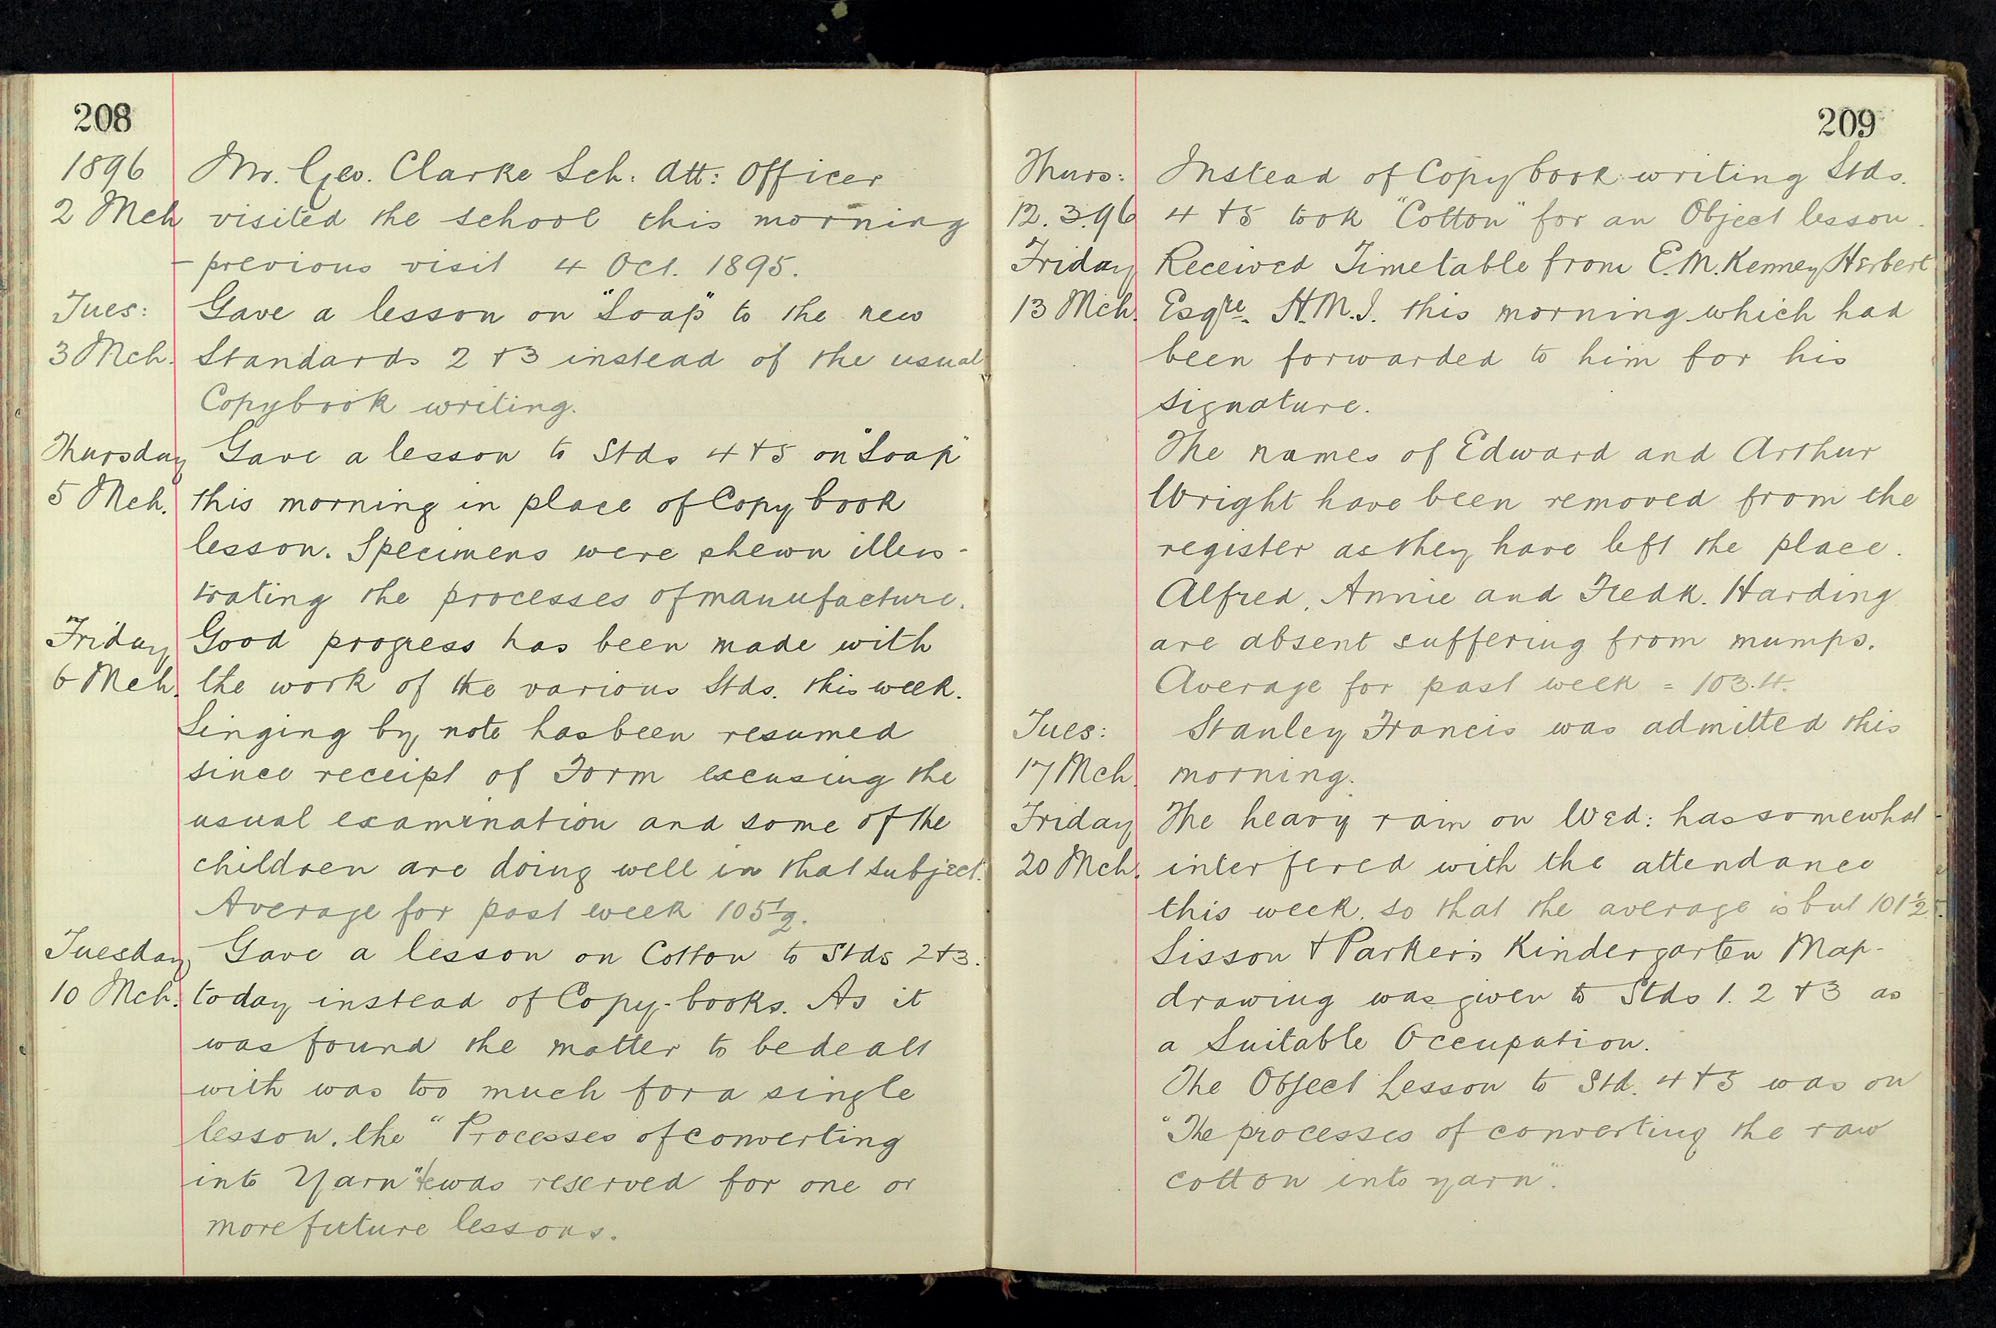 208
1896 Mr. Geo. Clarke Sch: Att: Officer
2 Mch visited the school this morning
- previous visit 4 Oct. 1895.
Tues: Gave a lesson on "Soap" to the new
3 Mch. Standards 2 & 3 instead of the usual
Copybook writing.
Thursday Gave a lesson to Stds 4 & 5 on "Soap"
5 Mch. this morning in place of Copy book
lesson. Specimens were shewn illus-
trating the processes of manufacture.
Friday Good progress has been made with
6 Mch. the work of the various Stds. this week.
Singing by note has been resumed
since receipt of Form excusing the
usual examination and some of the
children are doing well in that subject.
Average for past week 105½.
Tuesday Gave a lesson on Cotton to Stds 2 & 3.
10 Mch. today instead of Copy-books. As it
was found the matter to be dealt
with was too much for a single
lesson, the "Processes of converting
into Yarn" was reserved for one or
more future lessons.
209
Thurs: Instead of Copybook writing Stds.
12.3.96 4 & 5 took "Cotton" for an Object lesson.
Friday Received Timetable from E.M. Kenney Herbert
13 Mch. Esqre. H.M.I. this morning which had
been forwarded to him for his
signature.
The names of Edward and Arthur
Wright have been removed from the
register as they have left the place.
Alfred, Annie and Fredk. Harding
are absent suffering from mumps.
Average for past week = 103.4.
Tues: Stanley Francis was admitted this
17 Mch. morning.
Friday The heavy rain on Wed: has somewhat
20 Mch. interfered with the attendance
this week, so that the average is but 101½.
Sisson & Parker's Kindergarten Map-
drawing was given to Stds 1. 2 & 3 as
a Suitable Occupation.
The Object Lesson to Std. 4 & 5 was on
"The processes of converting the raw
cotton into yarn".